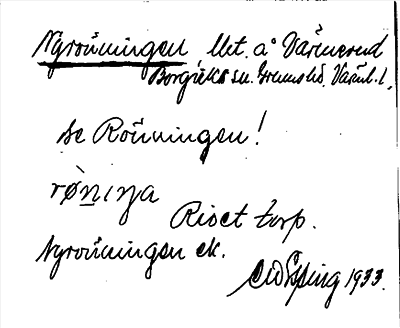 Nyrönningen lht. å Värmerud
Borgviks sn. Grums hd, Värml.l.
se Rönningen!
røniŋa
Risct torp.
Nyrönningen ek.
1933.